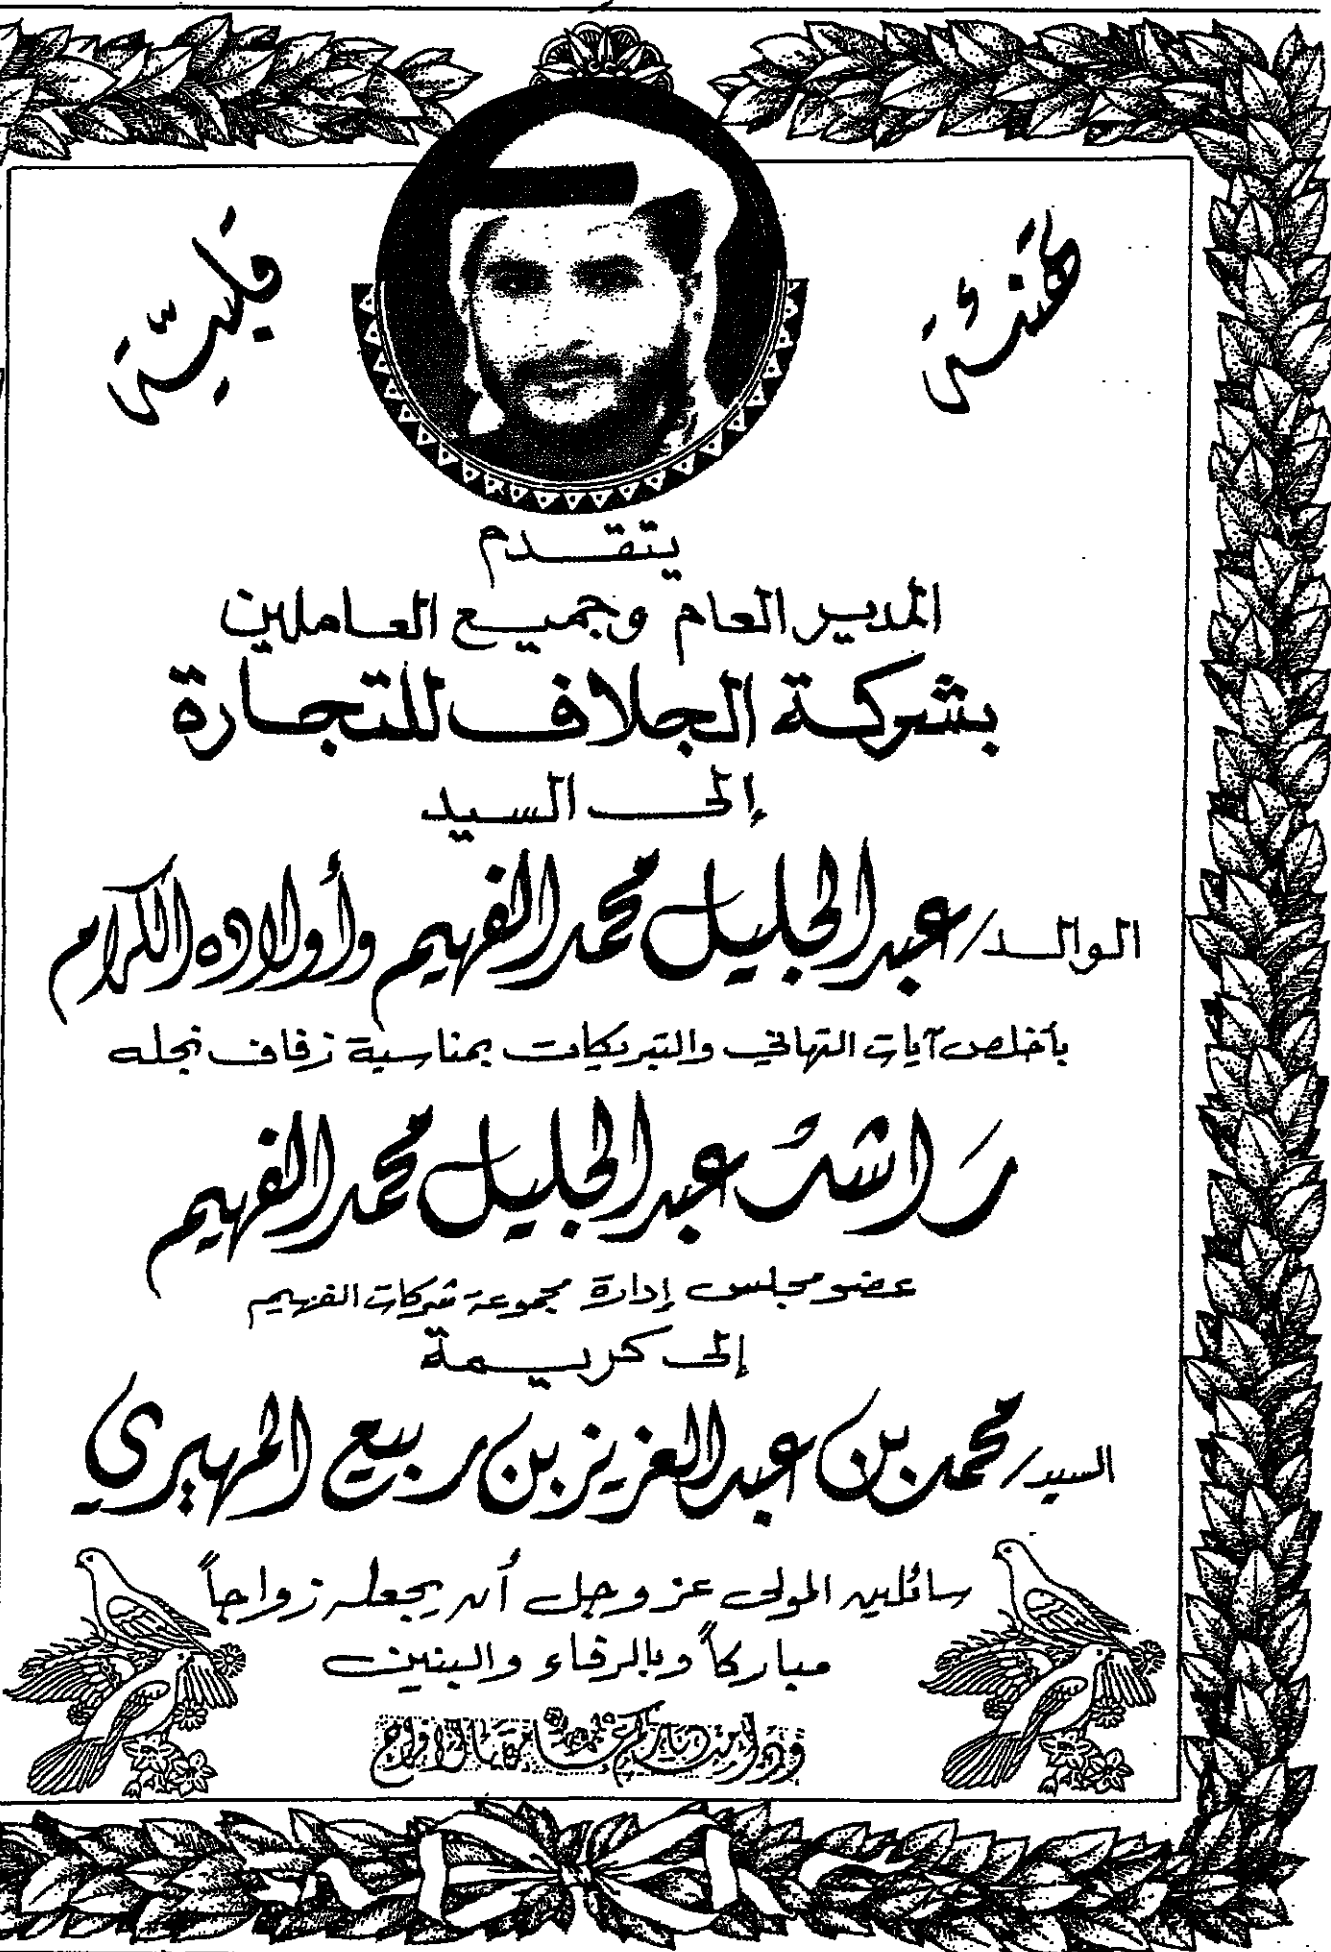 تهنئة قلبيّة
يتقدم
المدير العام وجميع العاملين
بشركة الجلاف للتجارة
إلى السيد
الوالد/ عبد الجليل محمد الفهيم وأولاده الكرام
بأخلص آيات التهاني والتبريكات بمناسبة زفاف نجله
راشد عبد الجليل محمد الفهيم
عضو مجلس إدارة مجموعة شركات الفهيم
إلى كريمة
السيد/ محمد بن عبد العزيز بن ربيع المهيري
سائلين المولى عز وجل أن يجعله زواجاً
مباركاً وبالرفاء والبنين